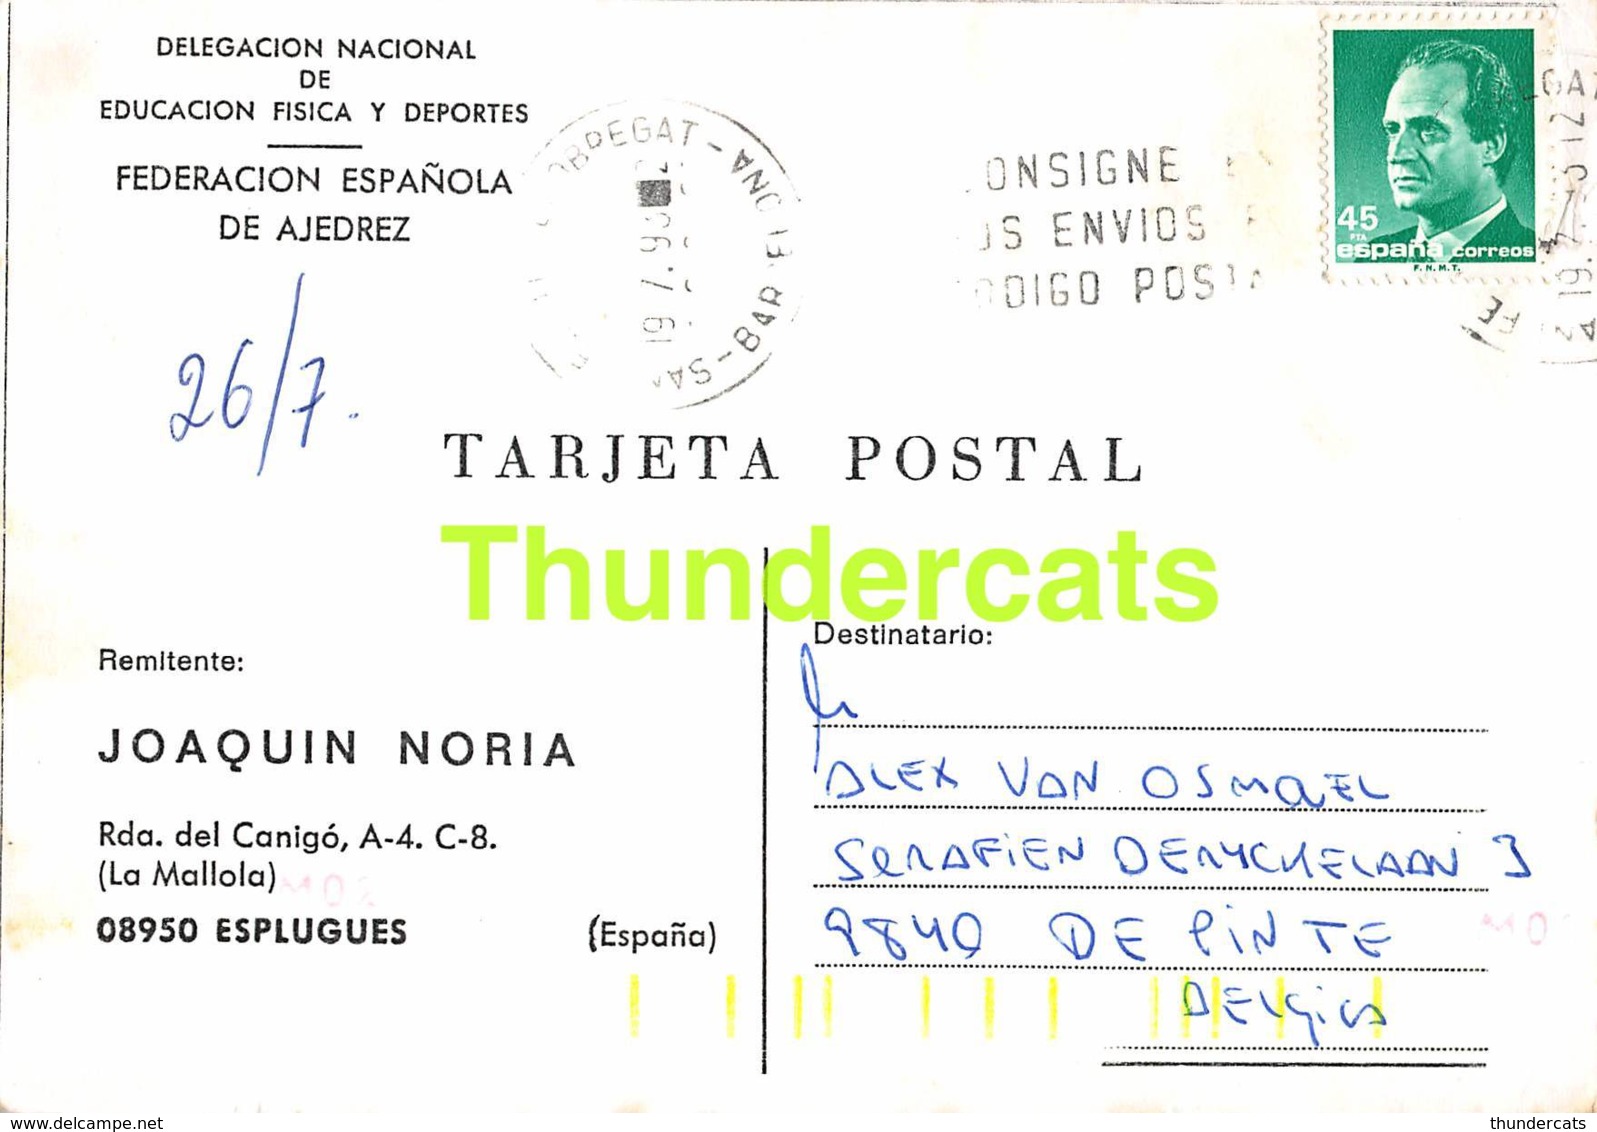 DELEGACION NACIONAL
DE
EDUCACION FISICA Y DEPORTES
FEDERACION ESPAÑOLA
DE AJEDREZ
45
PTA
españa correos
F.N.M.T.
ONSIGNE
US ENVIOS
ODIGO POSTA
OBREGAT - SAN
- BAR
19 7. 93
26/7.
TARJETA POSTAL
Thundercats
Remitente:
JOAQUIN NORIA
Rda. del Canigó, A-4. C-8.
(La Mallola)
08950 ESPLUGUES (España)
Destinatario:
ALEX VAN OSMAEL
SERAFIEN DERYCKELAAN 3
9840 DE PINTE
BELGICA
www.delcampe.net
thundercats